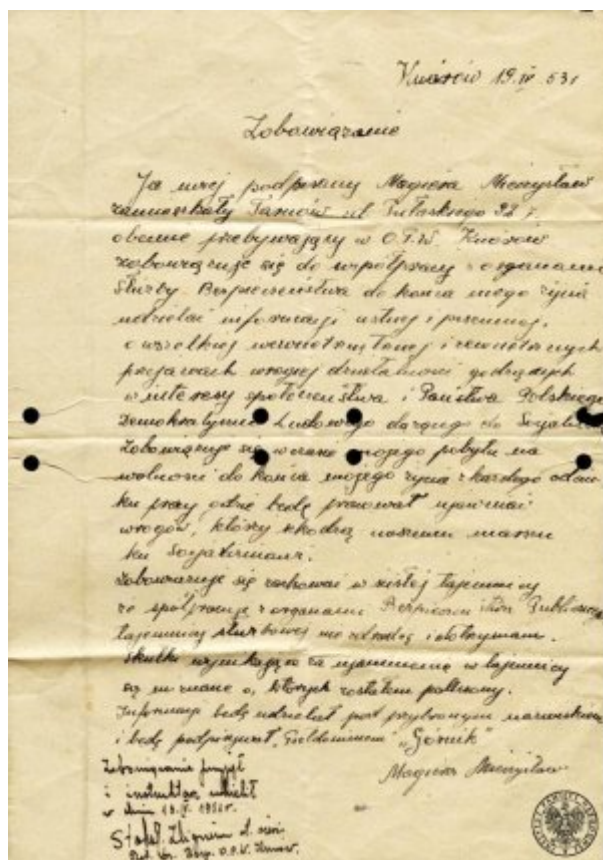 Knurów 19.IV 53 r
Zobowiązanie
Ja niżej podpisany Magiera Mieczysław
zamieszkały ul Pułaskiego 32
obecnie przebywający w O.P.W. Knurów
zobowiązuje się do współpracy z organami
Służby Bezpieczeństwa do końca mego życia
udzielać informacji ustnej i pisemnej,
o wszelkiej i zewnętrznych
przejawach wrogiej działalności godzących
w interesy społeczeństwa i Państwa Polskiego
Ludowego dążącego do
Zobowiązuje się w czasie mojego pobytu na
wolności do końca mojego życia z każdego
pracy gdzie będę pracował ujawniać
wrogów, którzy szkodzą naszemu marszu
ku Socjalizmowi.
Zobowiązuje się zachować w ścisłej tajemnicy
że z organami
tajemnicy służbowej nie zdradzę i dotrzymam.
Skutki wynikające za w tajemnicy
są mi znane o których zostałem
Informacje będę udzielał pod przybranym
i będę podpisywał, "Górnik"
Magiera Mieczysław
Zobowiązanie przyjął
i udzielił
w dniu
Zbigniew
O.P.W.